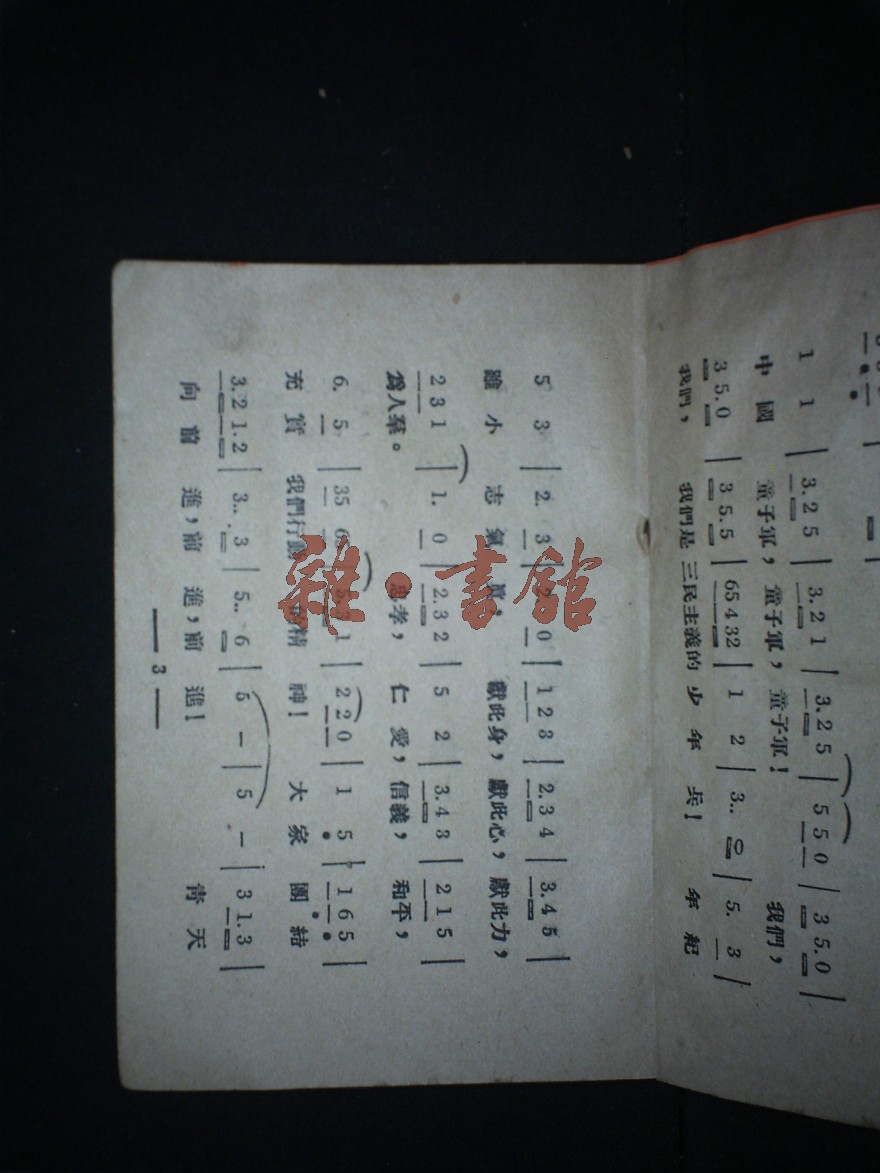 1 1 | 3. 2 5 | 3. 2 1 | 3. 2 5 | 5 5 0 | 3 5. 0 |
中國 童子軍，童子軍，童子軍！ 我們，
3 5. 0 | 3 5. 5 | 6 5 4 3 2 | 1 2 | 3.. 0 | 5. 3
我們， 我們是 三民主義的 少年兵！ 年紀
5 3 | 2. 3 | 2 0 | 1 2 3 | 2. 3 4 | 3. 4 5 |
雖小 志氣眞， 獻此身，獻此心，獻此力，
2 3 1 | 1. 0 | 2. 3 2 | 5 2 | 3. 4 3 | 2 1 5 |
爲人羣。 忠孝， 仁愛，信義， 和平，
6. 5 | 3 5 6 5 3 1 | 2 2 0 | 1 5 | 1 6 5 |
充實 我們行動 的精神！ 大家團結
3. 2 1. 2 | 3.. 3 | 5.. 6 | 5 — | 5 — | 3 1. 3 |
向前 進，前進，前進！ 青天
— 3 —
雜·書館